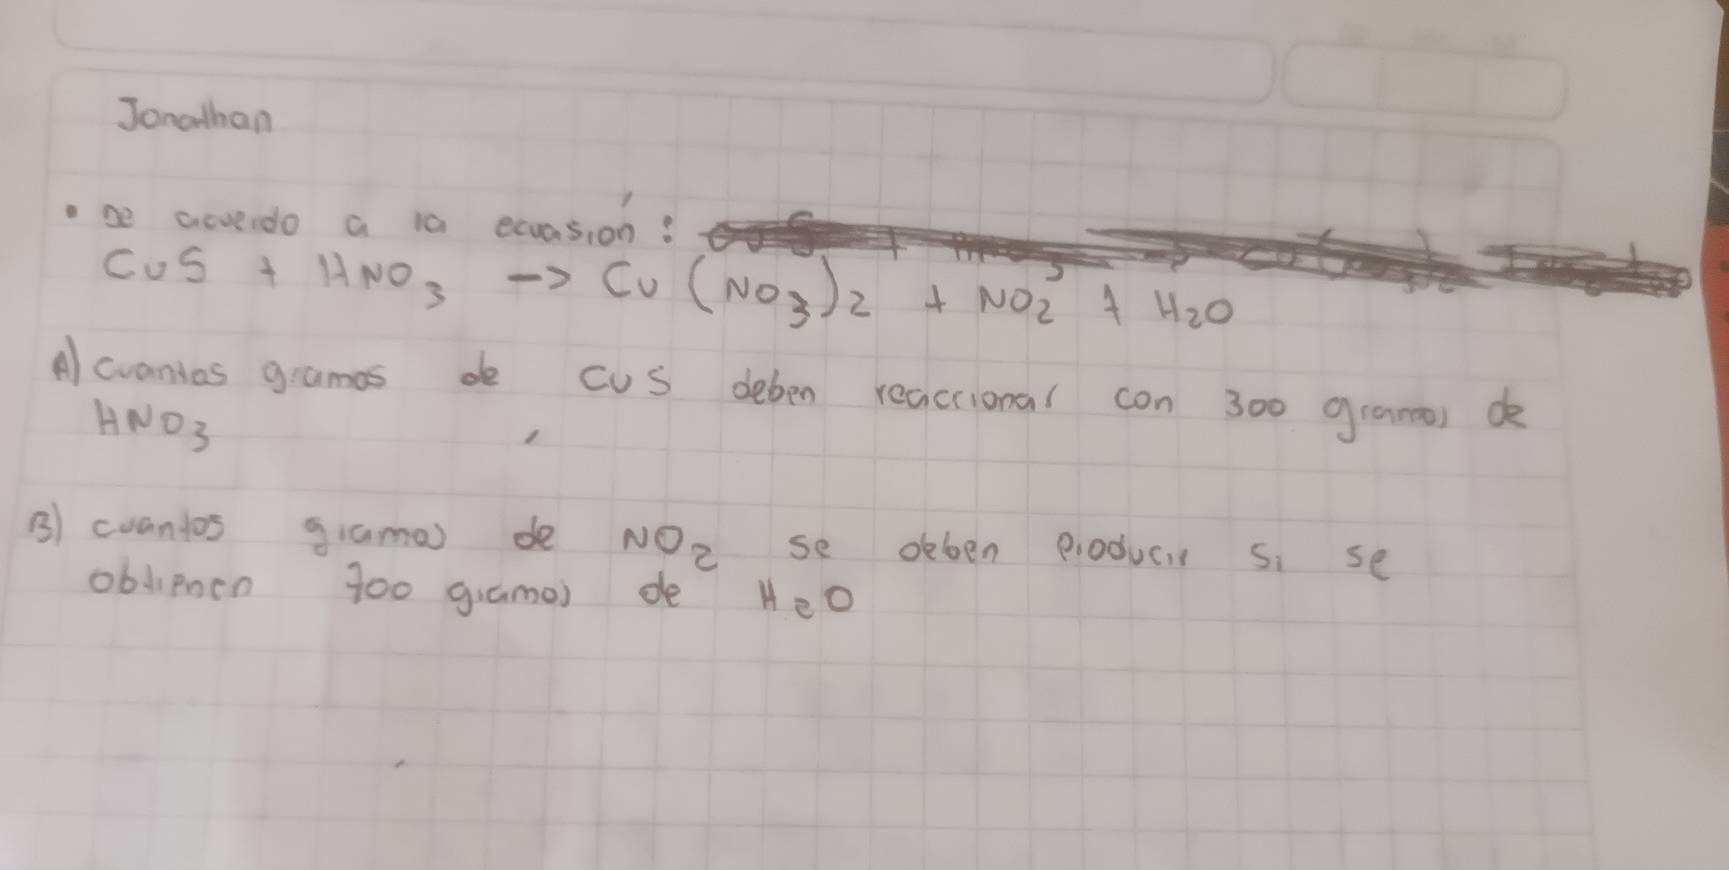 Jonathan
• De acuerdo a la ecuasión:
CuS + HNO3 -> Cu (NO3)2 + NO2 + H2O
A) cuantos gramos de CuS deben reaccionar con 300 gramos de
HNO3
B) cuantos gramos de NO2 se deben producir si se
obtienen 700 gramos de H2O